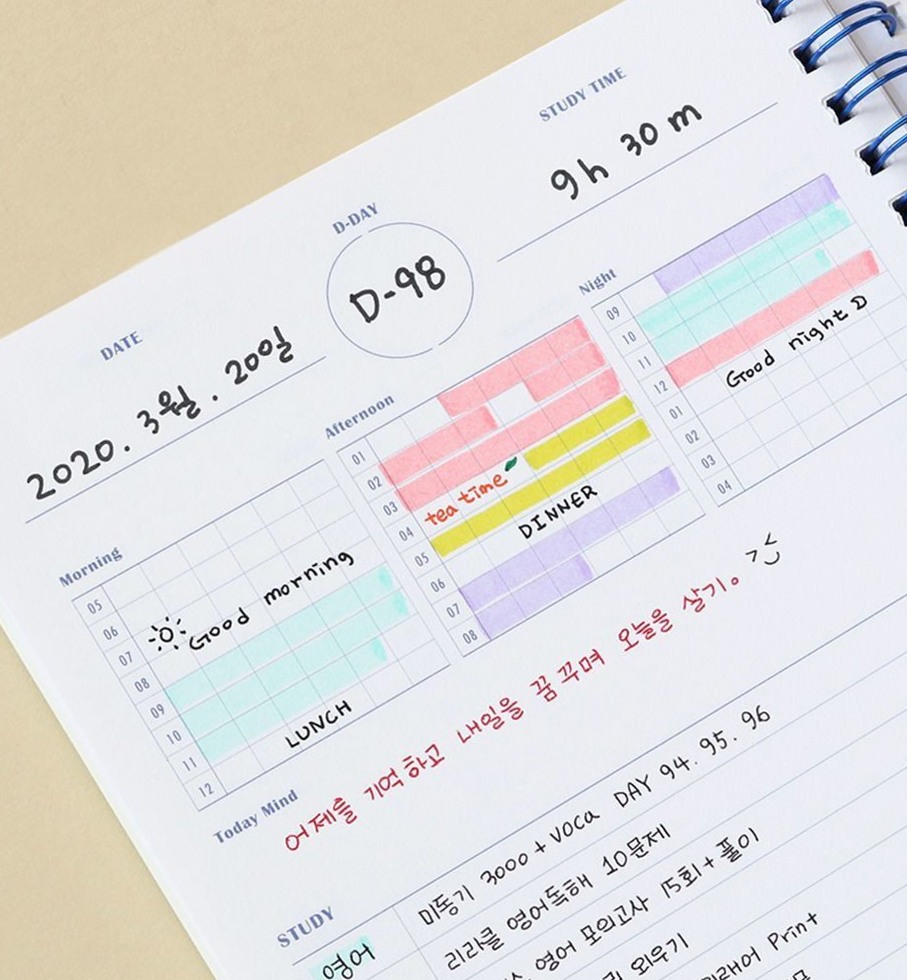 STUDY TIME
9h 30m
D-DAY
D-98
DATE
2020. 3월. 20일
Morning
05
06
07
08
09
10
11
12
Good morning
LUNCH
Afternoon
01
02
03
04
05
06
07
08
tea time
DINNER
Night
09
10
11
12
01
02
03
04
Good night D
Today Mind
어제를 기억하고 내일을 꿈꾸며 오늘을 살기。
STUDY
영어
미동기 3000 + VOCA DAY 94. 95. 96
리라클 영어독해 10문제
영어 모의고사 15회 + 풀이
외우기
Print